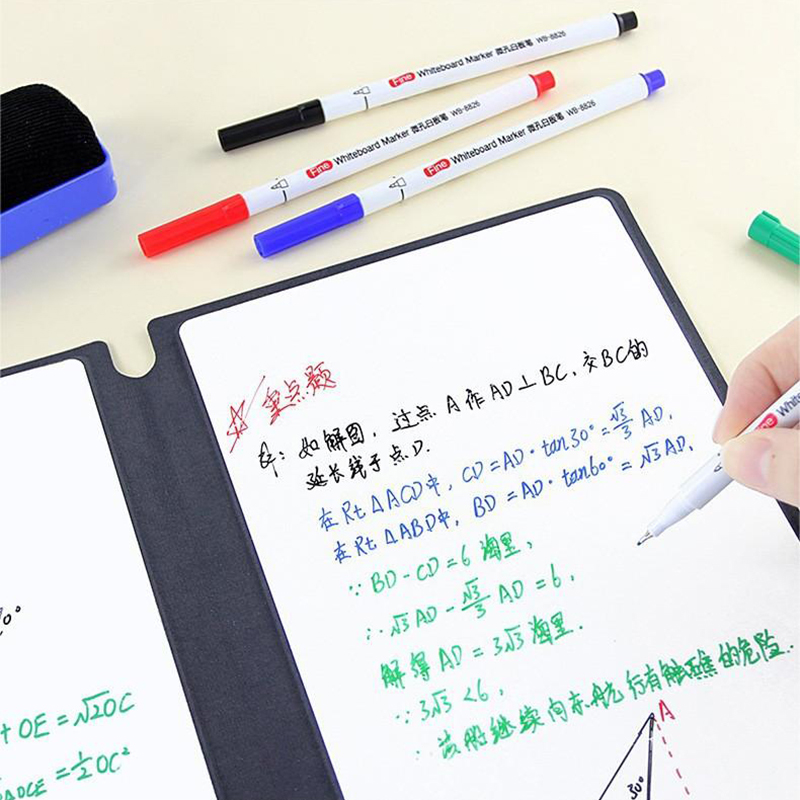 Fine Whiteboard Marker 微孔白板笔 WB-8826
Fine Whiteboard Marker 微孔白板笔 WB-8826
Fine Whiteboard Marker 微孔白板笔 WB-8826
重点题
如解图,过点A作AD⊥BC,交BC的
延长线于点D.
在Rt△ACD中,CD=AD·tan30°=√3/3 AD,
在Rt△ABD中,BD=AD·tan60°=√3AD,
∵BD-CD=6海里,
∴√3AD-√3/3 AD=6,
解得AD=3√3海里.
∵3√3<6,
∴该船继续向东航行有触礁的危险.
A
30°
Fine White
0°
+OE=√2OC
=1/2 OC²